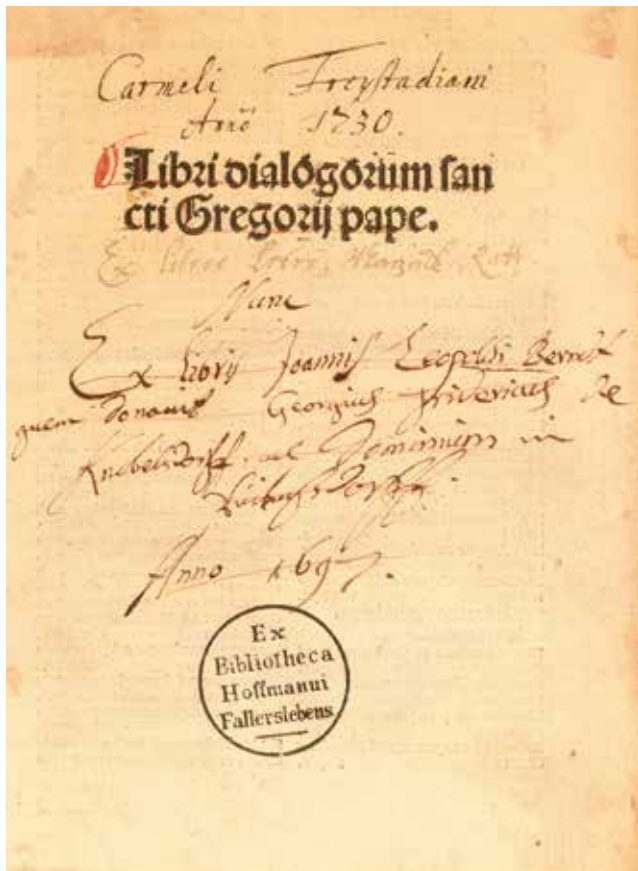 Carmeli Freystadiani
Anno 1730.
Libri dialogorum san
cti Gregorij pape.
Ex libris
Nunc
Ex libris Joannis Leopoldi
quem donavit Georgius Fridericus de
Knobelsdorff Dominium in
Anno 1697.
Ex
Bibliotheca
Hoffmanni
Fallerslebens